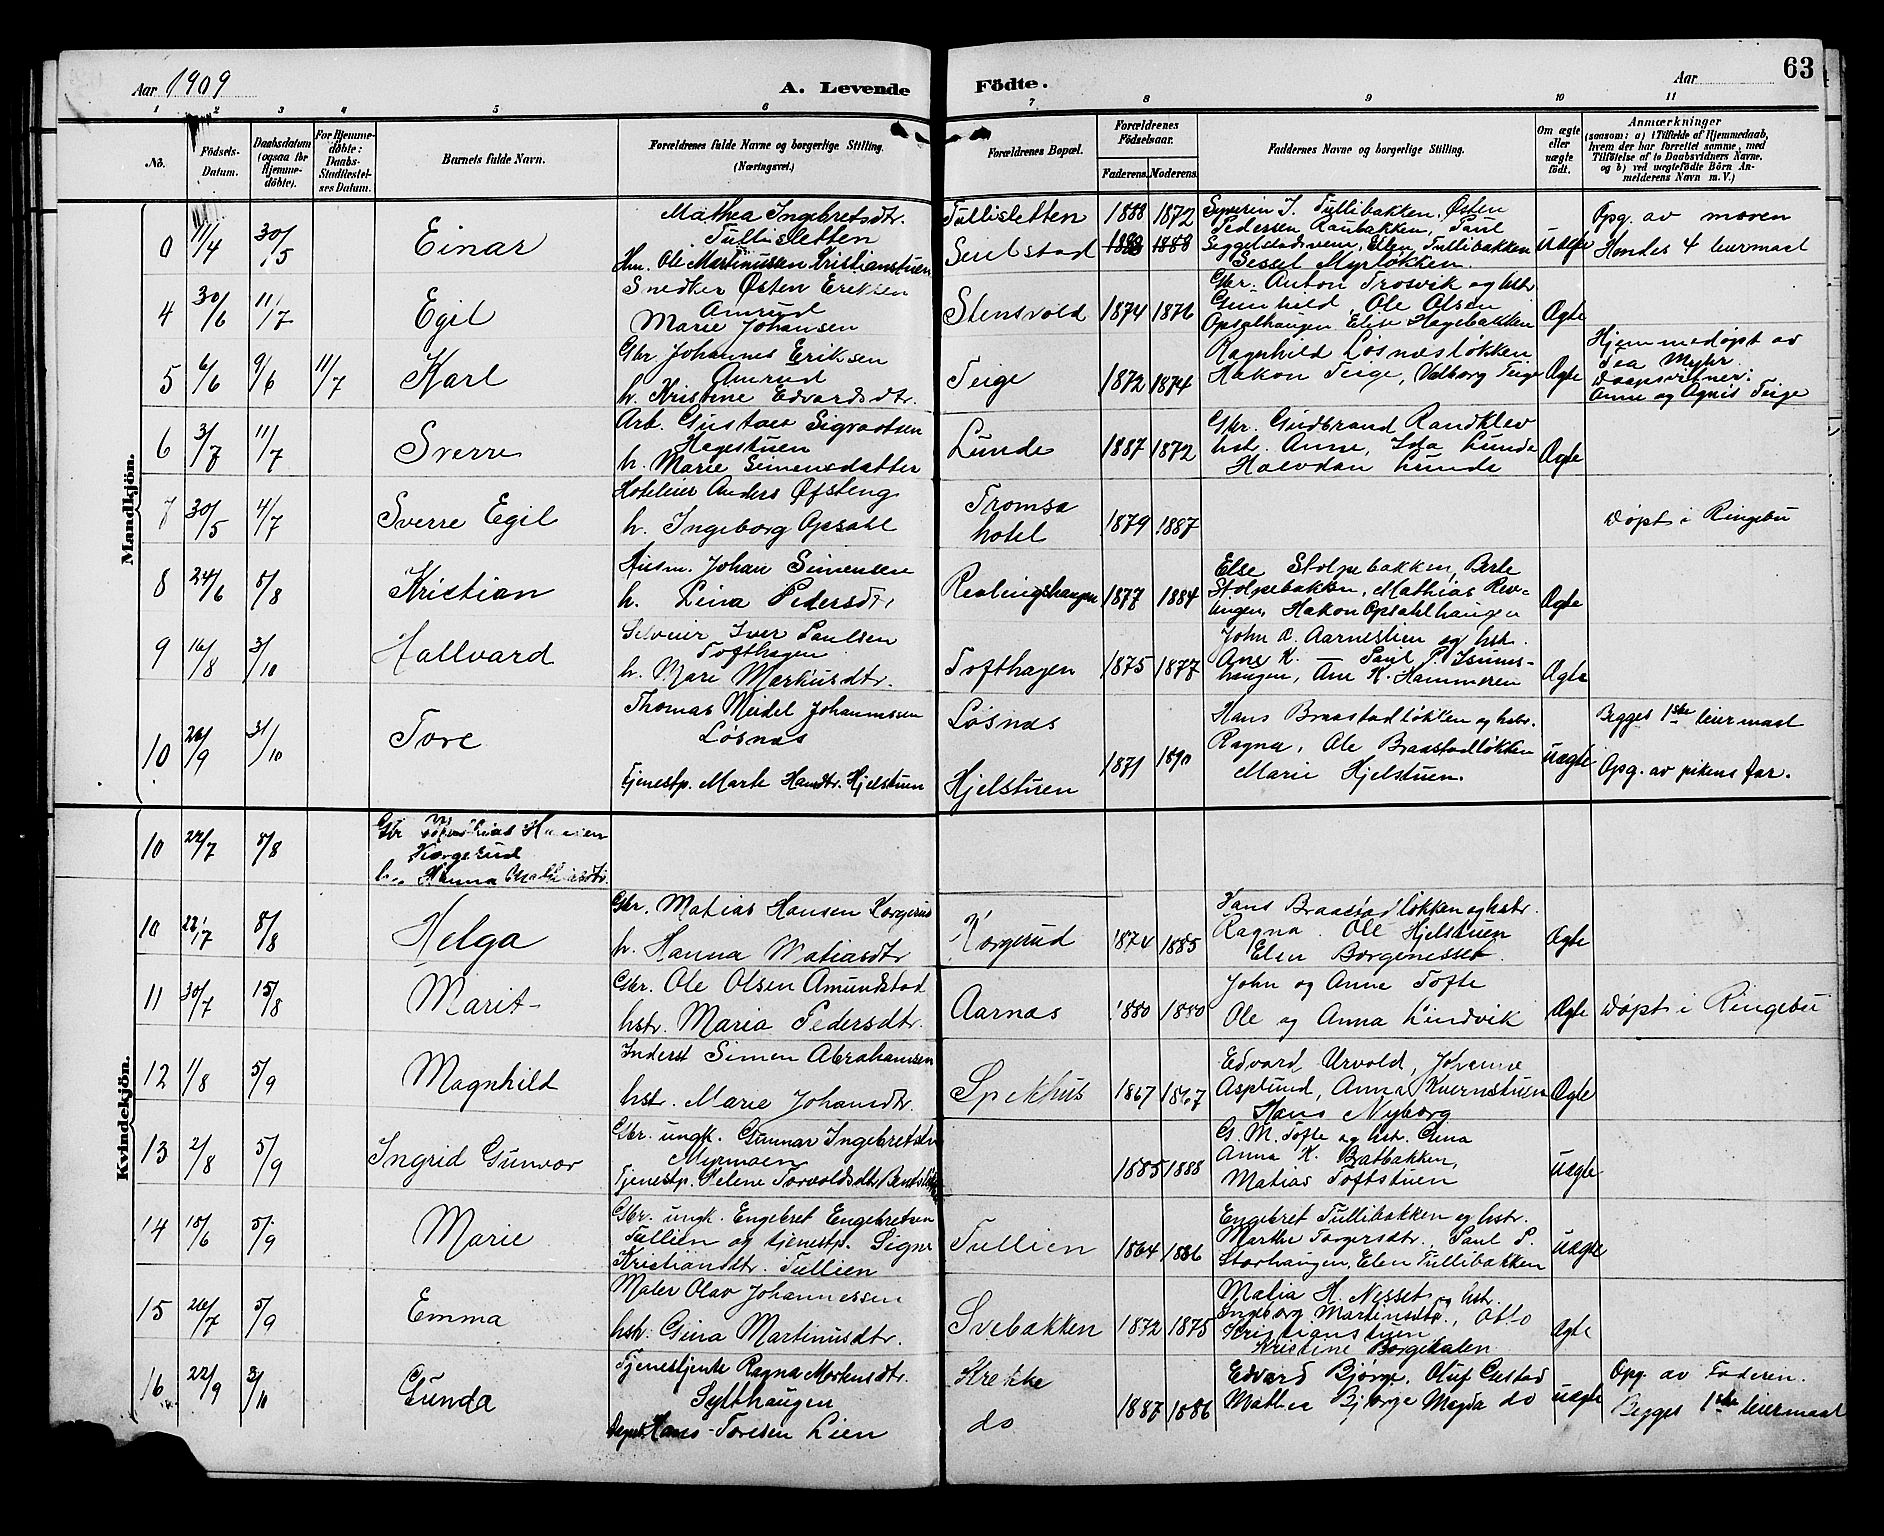 Aar 1909
A. Levende Födte.
Aar
63
1 2 3 4 5 6 7 8 9 10 11
No.
Födsels-Datum.
Daabsdatum (ogsaa for Hjemmedöbte).
For Hjemmedöbte: Daabs-Stadfæstelses Datum.
Barnets fulde Navn.
Forældrenes fulde Navne og borgerlige Stilling. (Næringsvei.)
Forældrenes Bopæl.
Forældrenes Födselsaar.
Faderens. Moderens.
Faddernes Navne og borgerlige Stilling.
Om ægte eller uægte födt.
Anmærkninger
(saasom: a) i Tilfælde af Hjemmedaab, hvem der har forrettet samme, med Tilföielse af to Daabsvidners Navne, og b) ved uægtefödte Börn Anmelderens Navn m. V.)
Mandkjön.
0 11/4 30/5 Einar
Mathea Ingebretsdtr.
Tullisletten
Hm. Ole Martinussen Kristianstuen
Tullisletten
Seielstad
1888 1872
1888 1888
Syverin J. Tullibakken, Østen
Pedersen Raubakken, Paul
Seggelstadsveen, Ellen Tullibakken
Sessel Myrløkken.
Uægte
Opg. av moren
Hendes 4 leiermaal
4 30/6 11/7 Egil
Snedker Østen Eriksen
Amrud
Marie Johansen
Stensvold
1874 1876
Gbr. Anton Trosvik og hstr
Gunhild, Ole Olsen
Opsalhaugen, Elise Hagebakken
Ægte
5 6/6 9/6 11/7 Karl
Gbr. Johannes Eriksen
Amrud
h. Kristine Edvardsdtr.
Teige
1872 1874
Ragnhild Løsnæsløkken
Hakon Teige, Valborg Teige
Ægte
Hjemmedøpt av
Tea Myhr
Daapsvidner:
Anne og Agnes Teige
6 3/7 11/7 Sverre
Arb. Gustav Sigvartsen
Hagestuen
h. Marie Simensdatter
Lunde
1887 1872
Gbr. Gudbrand Randklev
hst. Anne, Ida Lunde
Halvdan Lunde
Ægte
7 30/5 4/7 Sverre Egil
Hoteleier Anders Øfsteng
h. Ingeborg Opsahl
Tromsa
hotel
1879 1887
Døpt i Ringebu
8 24/6 8/8 Kristian
Husm. Johan Simensen
h. Lina Pedersdtr.
Revlingshaugen
1877 1884
Else Stolpebakken, Berte
Stolpebakken, Mathias Rev-
lingen, Hakon Opsahlhaugen
Ægte
9 16/8 3/10 Hallvard
Selveier Iver Paulsen
Tofthagen
h. Mari Markusdtr.
Tofthagen
1875 1877
John A. Aarneslien og hst.
Ane K. — Paul P. Isums-
haugen, Ane K. Hammeren
Ægte
10 26/9 31/10 Tore
Thomas Meidel Johannssen
Løsnæs
Tjenestp. Marte Hansdtr. Hjelstuen
Løsnæs
Hjelstuen
1871 1890
Hans Braastadløkken og hstr.
Ragna, Ole Braastadløkken
Marie Hjelstuen.
uægte
Begges 1ste leiermaal
Opg. av pikens far.
Kvindekjön.
10 22/7 8/8
Korgerud
10 22/7 8/8 Helga
Gbr. Matias Hansen Korgerud
h. Hanna Matiasdtr
Korgerud
1874 1885
Hans Braastadløkken og hstr.
Ragna. Ole Hjelstuen
Elen Borgenesset.
Ægte
11 30/7 15/8 Marit
Gbr. Ole Olsen Amundstad
hstr. Maria Pedersdtr.
Aarnæs
1880 1880
John og Anne Tofte
Ole og Anna Lindvik
Ægte
Døpt i Ringebu
12 1/8 5/9 Magnhild
Inderst Simen Abrahamsen
hstr. Marie Johansdtr.
Spekhus
1867 1867
Edvard Urvold, Johanne
Asplund, Anna Kvernstuen
Hans Nyborg
Ægte
13 2/8 5/9 Ingrid Gunvor
Gbr. ungk. Gunnar Ingebretsen
Myrmoen
Tjenestp. Helene Torvoldsdtr.
1885 1888
G. M. Tofte og hst. Gina
Anna K. Bratbakken,
Matias Toftstuen
uægte
14 15/6 5/9 Marie
Gbr. ungk. Engebret Engebretsen
Tullien og tjenestp. Signe
Kristiansdtr. Tullien
Tullien
1864 1886
Engebret Tullibakken og hstr.
Marthe Torgersdtr., Paul P.
Storhaugen, Elen Tullibakken
uægte
15 26/7 5/9 Emma
Maler Olav Johannessen
hstr. Gina Martinusdtr.
Svebakken
1872 1875
Matia H. Nesset og hstr.
Ingeborg Martinsdtr., Otto
Kristianstuen
Kristine Borgedalen
Ægte
16 22/9 3/10 Gunda
Tjenestjente Ragna Markusdtr.
Sylthaugen
Hans Toresen Lien
Krekke
do
1887 1886
Edvard Bjørge, Oluf Gustad
Mathea Bjørge Magda do
uægte
Opg. av Faderen.
Begges 1ste leiermaal